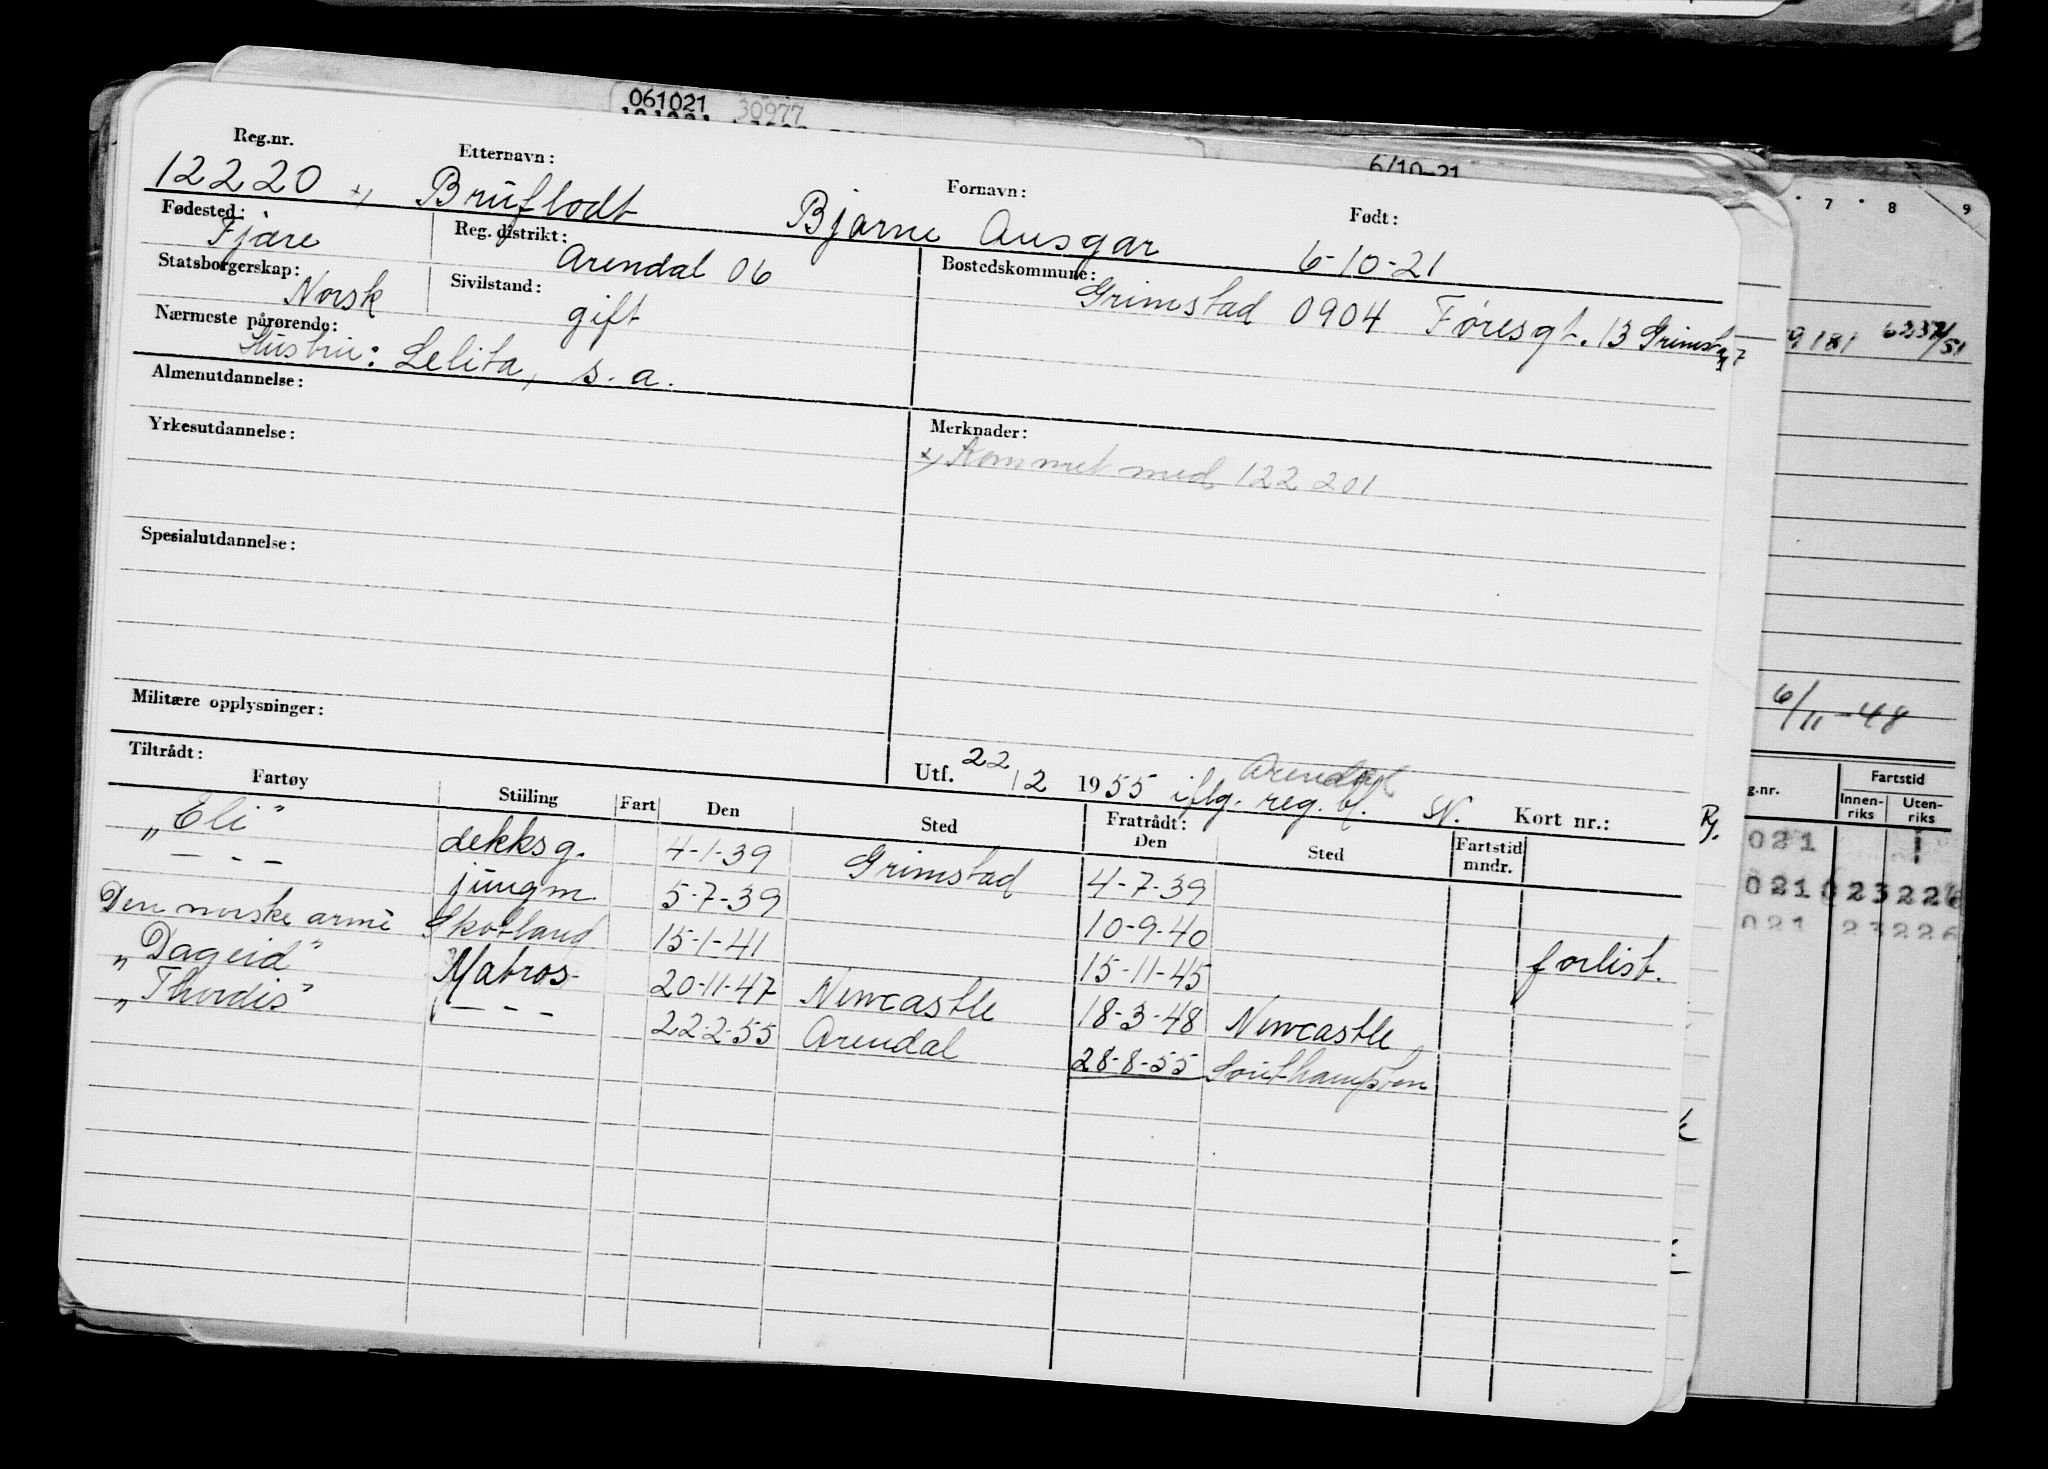 061021 30977
6/10-21
Reg.nr. Etternavn: Fornavn: Født:
12220 x) Bruflodt Bjarne Ansgar 6-10-21
Fødested: Fjære Reg. distrikt: Arendal 06 Bostedskommune: Grimstad 0904 Føresgt. 13 Grimst.
Statsborgerskap: Norsk Sivilstand: gift
Nærmeste pårørende: Hustru: Lelita, s. a.
Almenutdannelse:
Yrkesutdannelse:
Merknader:
x) Kommet med 122 201
Spesialutdannelse:
Militære opplysninger:
Utf. 22/2 1955 iflg. Arendal reg. bl. N. Kort nr.:
Tiltrådt: Fratrådt:
Fartøy Stiilling Fart Den Sted Den Sted Fartstid mndr.
„Eli" dekksg. 4-1-39 Grimstad 4-7-39
— - - jungm. 5-7-39 10-9-40 forlist.
Den norske armè Skotland 15-1-41 15-11-45
„Dageid" Matros 20-11-47 Newcastle 18-3-48 Newcastle
„Thordis" — - - 22-2-55 Arendal 28-8-55 Southampton
7 8 9
6/11-48
g.nr. Fartstid
Innen-riks Uten-riks
021
021 0 23 226
021 23 226